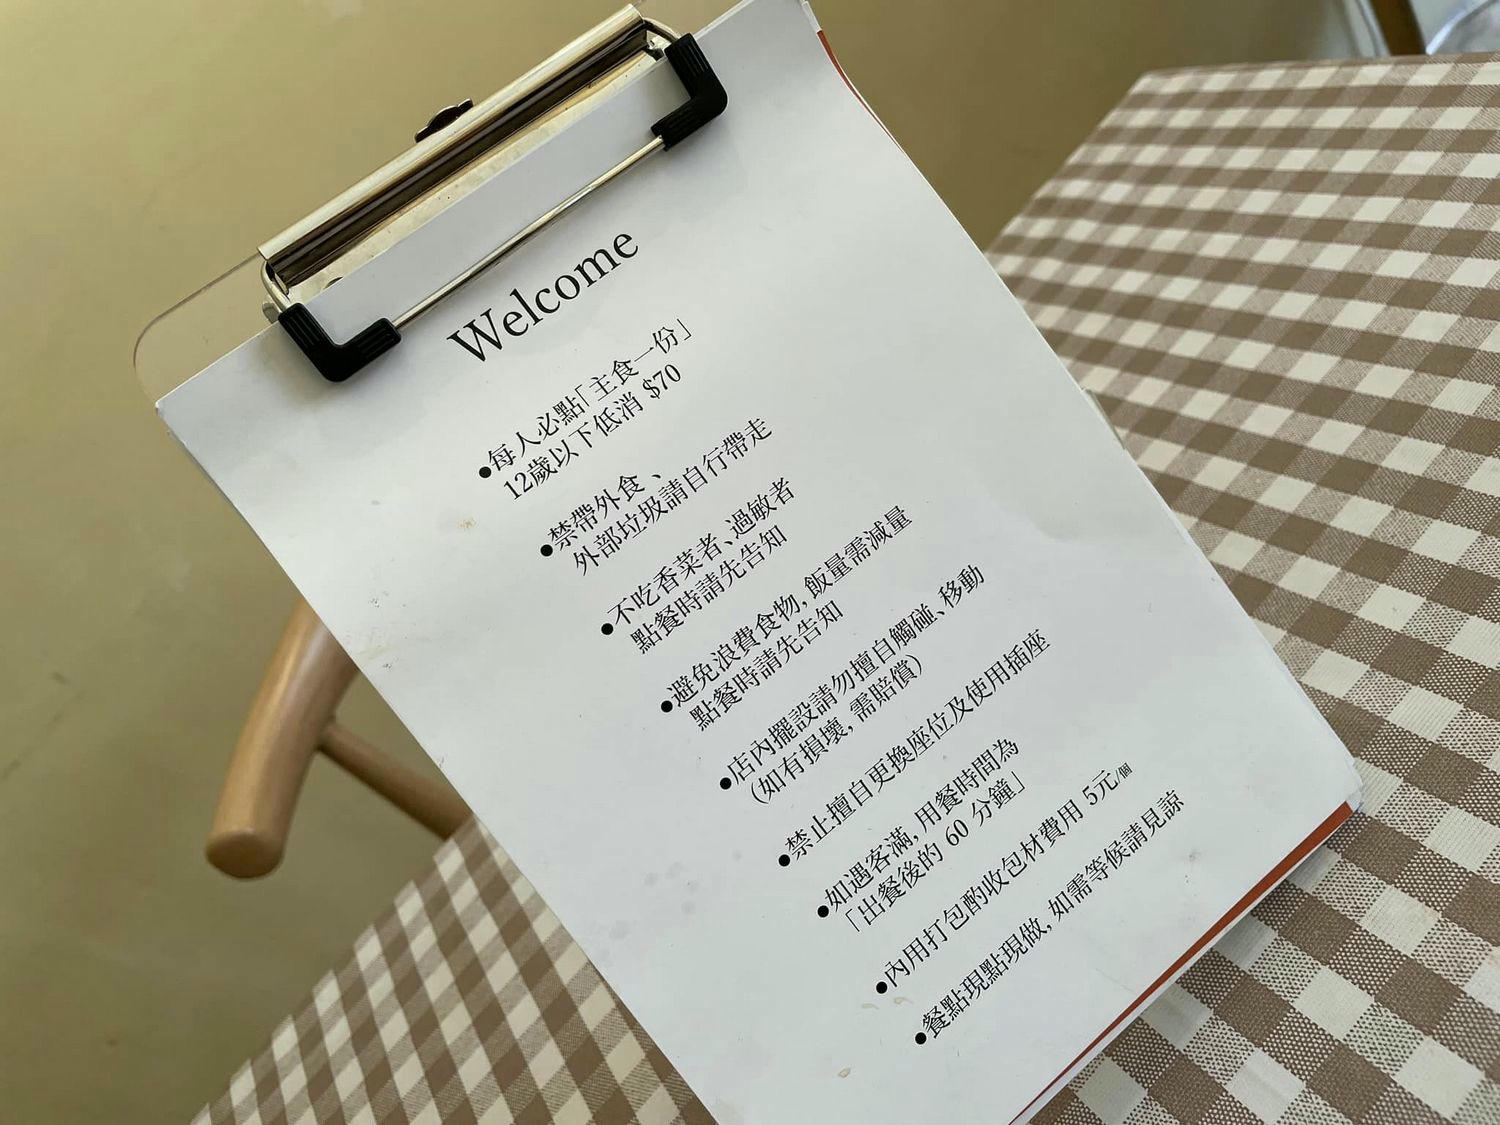 Welcome
●每人必點「主食一份」
12歲以下低消 $70
●禁帶外食、
外部垃圾請自行帶走
●不吃香菜者、過敏者
點餐時請先告知
●避免浪費食物, 飯量需減量
點餐時請先告知
●店內擺設請勿擅自觸碰、移動
(如有損壞, 需賠償)
●禁止擅自更換座位及使用插座
●如遇客滿, 用餐時間為
「出餐後的 60 分鐘」
●內用打包酌收包材費用 5元/個
●餐點現點現做, 如需等候請見諒